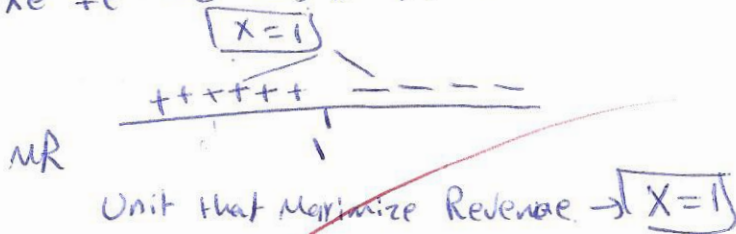 X = 1
+ + + + + + - - - -
1
MR
Unit that Maximize Revenue → X = 1